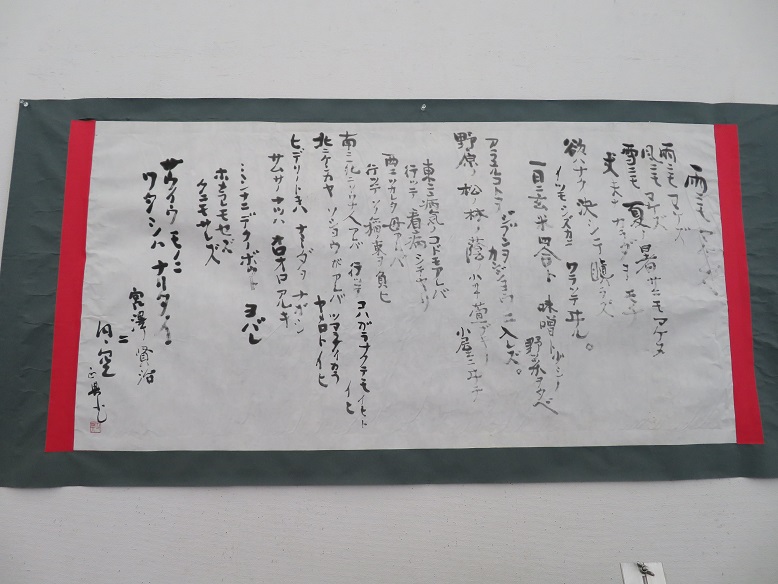 雨ニモマケズ
雨ニモマケズ
風ニモマケズ
雪ニモ夏ノ暑サニモマケヌ
丈夫ナカラダヲモチ
欲ハナク決シテ瞋ラズ
イツモシズカニワラッテヰル。
一日ニ玄米四合ト味噌ト少シノ
野菜ヲタベ
アラユルコトヲジブンヲ
カンジョウニ入レズ。
野原ノ松ノ林ノ蔭ノ小サナ萱ブキノ
小屋ニヰテ
東ニ病気ノコドモアレバ
行ッテ看病シテヤリ
西ニツカレタ母アレバ
行ッテソノ稲ノ束ヲ負ヒ
南ニ死ニソウナ人アレバ行ッテコハガラナクテモイヽト
イヒ
北ニケンカヤソショウガアレバツマラナイカラ
ヤメロトイヒ
ヒデリノトキハナミダヲナガシ
サムサノナツハオロオロアルキ
ミンナニデクノボートヨバレ
ホメラレモセズ
クニモサレズ
サウイウモノニ
ワタシハナリタイ
宮澤賢治